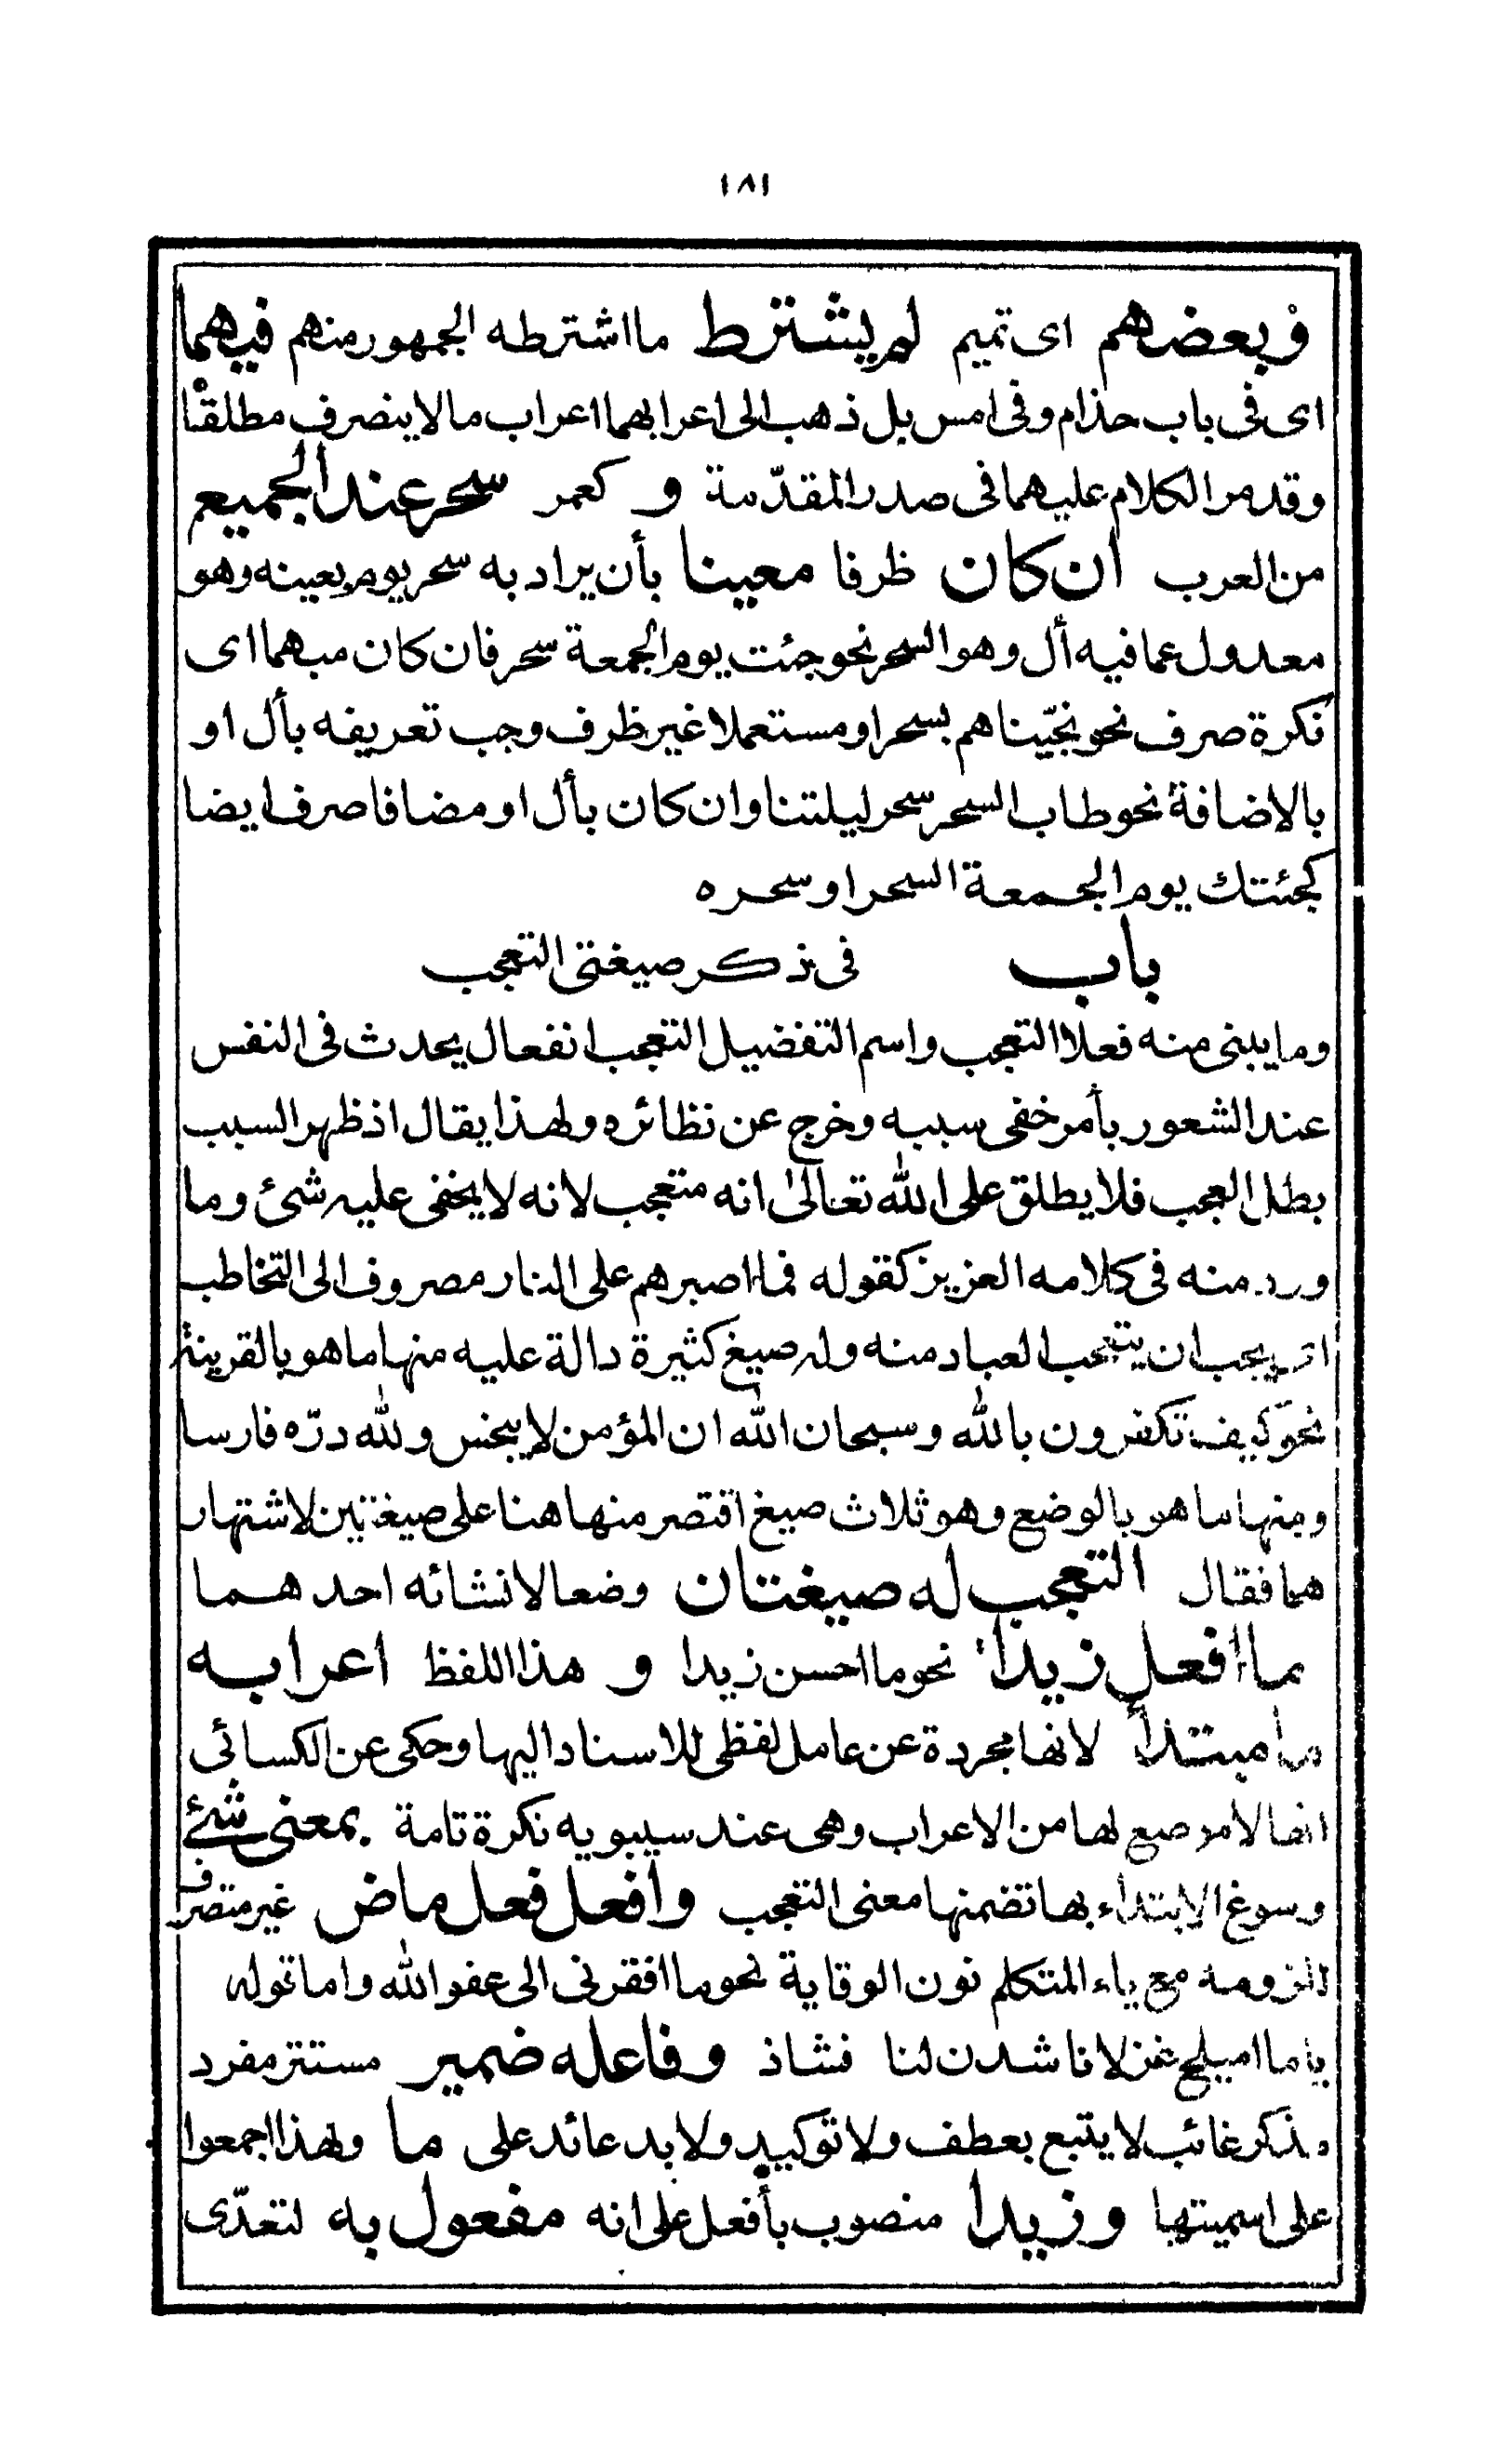 ١٨١
وبعضهم اى تميم لم يشترط مااشترطه الجمهور منهم فيهما
اى فى باب حذام وفى امس بل ذهب الى اعرابهما اعراب مالا ينصرف مطلقا
وقد مر الكلام عليهما فى صدر المقدّمة و كعمر سحر عند الجميع
من العرب ان كان ظرفا معينا بأن يراد به سحر يوم بعينه وهو
معدول عما فيه أل وهو السحر نحو جئت يوم الجمعة سحر فان كان مبهما اى
نكرة صرف نحو نجّيناهم بسحر او مستعملا غير ظرف وجب تعريفه بأل او
بالاضافة نحو طاب السحر سحر ليلتنا وان كان بأل او مضافا صرف ايضا
كجئتك يوم الجمعة السحر او سحره
باب فى ذكر صيغتى التعجب
وما يبنى منه فعلا التعجب واسم التفضيل التعجب انفعال يحدث فى النفس
عند الشعور بأمر خفى سببه وخرج عن نظائره ولهذا يقال اذ ظهر السبب
بطل العجب فلا يطلق على الله تعالى انه متعجب لانه لا يخفى عليه شئ وما
ورد منه فى كلامه العزيز كقوله فما اصبرهم على النار مصروف الى التخاطب
اى يجب ان يتعجب العباد منه وله صيغ كثيرة دالة عليه منها ما هو بالقرينة
نحو كيف تكفرون بالله وسبحان الله ان المؤمن لا ينجس ولله درّه فارسا
ومنها ما هو بالوضع وهو ثلاث صيغ اقتصر منها هنا على صيغتين لاشتهار
هما فقال التعجب له صيغتان وضعا لانشائه احدهما
ما افعل زيدا نحو ما احسن زيدا و هذا اللفظ اعرابه
ما مبتدأ لانها مجردة عن عامل لفظى للاسناد اليها وحكى عن الكسائى
انها لا موضع لها من الاعراب وهى عند سيبويه نكرة تامة بمعنى شئ
وسوغ الابتداء بها تضمنها معنى التعجب وافعل فعل ماض غير متصرف
للزومه مع ياء المتكلم نون الوقاية نحو ما افقرنى الى عفو الله واما قوله
ياما اميلح غزلانا شدن لنا فشاذ وفاعله ضمير مستتر مفرد
مذكر غائب لا يتبع بعطف ولا توكيد ولا بد عائد على ما ولهذا اجمعوا
على اسميتها وزيدا منصوب بأفعل على انه مفعول به لتعدّى